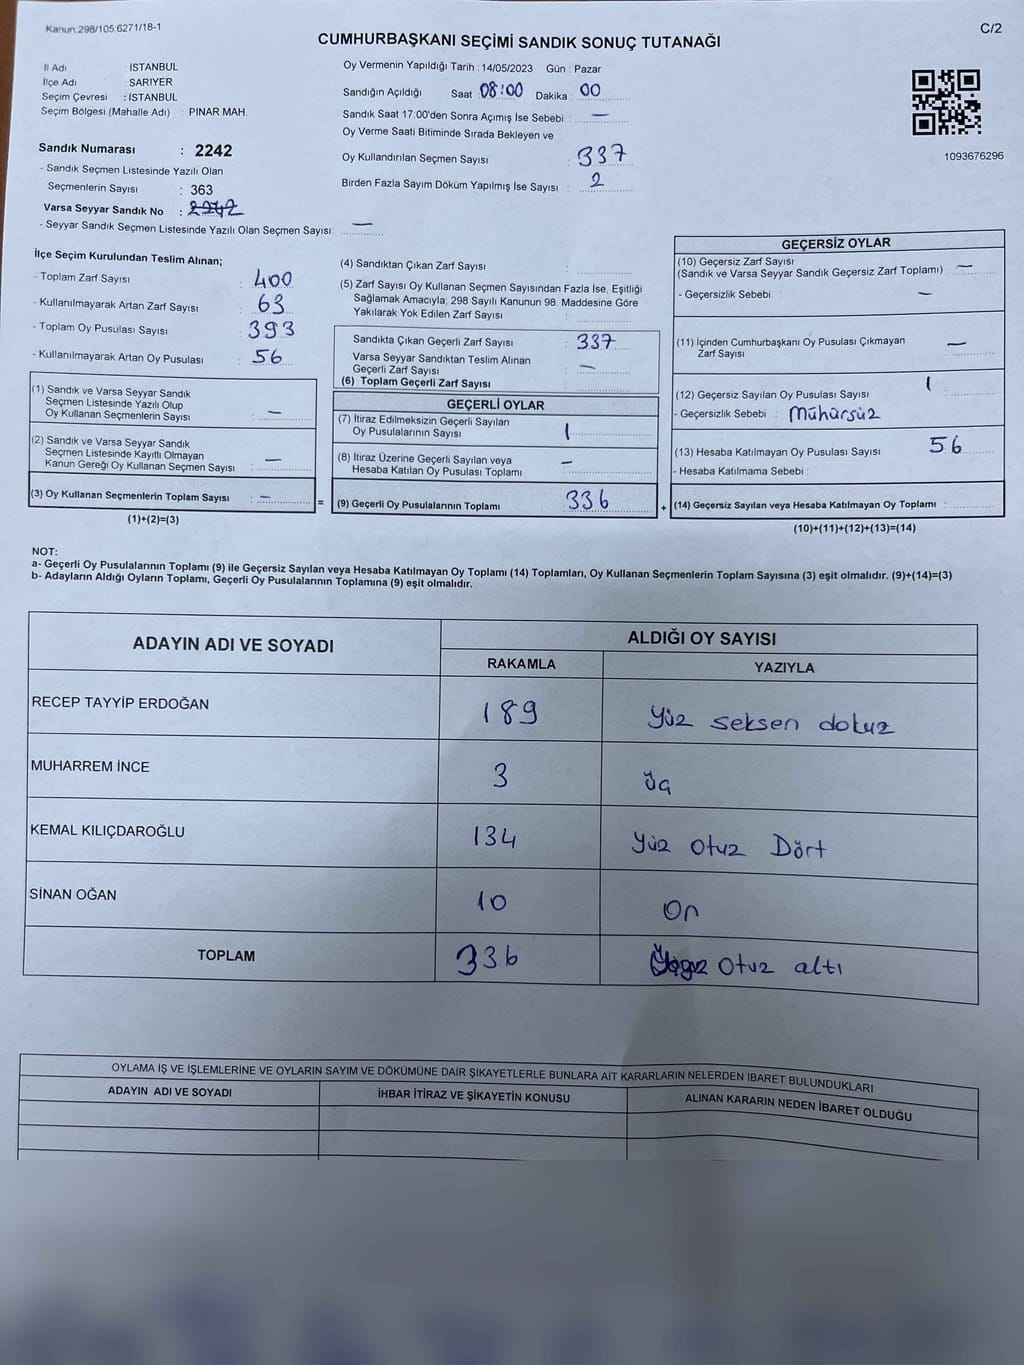 Kanun.298/105,6271/18-1
C/2
CUMHURBAŞKANI SEÇİMİ SANDIK SONUÇ TUTANAĞI
İl Adı İSTANBUL
İlçe Adı SARIYER
Seçim Çevresi : İSTANBUL
Seçim Bölgesi (Mahalle Adı) PINAR MAH.
Sandık Numarası : 2242
- Sandık Seçmen Listesinde Yazılı Olan
Seçmenlerin Sayısı : 363
Varsa Seyyar Sandık No : 2242
- Seyyar Sandık Seçmen Listesinde Yazılı Olan Seçmen Sayısı: —
Oy Vermenin Yapıldığı Tarih : 14/05/2023 Gün : Pazar
Sandığın Açıldığı Saat 08:00 Dakika : 00
Sandık Saat 17:00'den Sonra Açımış İse Sebebi : —
Oy Verme Saati Bitiminde Sırada Bekleyen ve
Oy Kullandırılan Seçmen Sayısı : 337
Birden Fazla Sayım Döküm Yapılmış İse Sayısı : 2
1093676296
İlçe Seçim Kurulundan Teslim Alınan;
- Toplam Zarf Sayısı : 400
- Kullanılmayarak Artan Zarf Sayısı : 63
- Toplam Oy Pusulası Sayısı : 393
- Kullanılmayarak Artan Oy Pusulası : 56
(1) Sandık ve Varsa Seyyar Sandık
Seçmen Listesinde Yazılı Olup
Oy Kullanan Seçmenlerin Sayısı : —
(2) Sandık ve Varsa Seyyar Sandık
Seçmen Listesinde Kayıtlı Olmayan
Kanun Gereği Oy Kullanan Seçmen Sayısı : —
(3) Oy Kullanan Seçmenlerin Toplam Sayısı : —
(1)+(2)=(3)
=
(4) Sandıktan Çıkan Zarf Sayısı :
(5) Zarf Sayısı Oy Kullanan Seçmen Sayısından Fazla İse, Eşitliği
Sağlamak Amacıyla; 298 Sayılı Kanunun 98. Maddesine Göre
Yakılarak Yok Edilen Zarf Sayısı :
Sandıkta Çıkan Geçerli Zarf Sayısı : 337
Varsa Seyyar Sandıktan Teslim Alınan
Geçerli Zarf Sayısı : —
(6) Toplam Geçerli Zarf Sayısı
GEÇERLİ OYLAR
(7) İtiraz Edilmeksizin Geçerli Sayılan
Oy Pusulalarının Sayısı : 1
(8) İtiraz Üzerine Geçerli Sayılan veya
Hesaba Katılan Oy Pusulası Toplamı : —
(9) Geçerli Oy Pusulalarının Toplamı : 336
+
GEÇERSİZ OYLAR
(10) Geçersiz Zarf Sayısı
(Sandık ve Varsa Seyyar Sandık Geçersiz Zarf Toplamı) : —
- Geçersizlik Sebebi : —
(11) İçinden Cumhurbaşkanı Oy Pusulası Çıkmayan
Zarf Sayısı : —
(12) Geçersiz Sayılan Oy Pusulası Sayısı : 1
- Geçersizlik Sebebi : Mühürsüz
(13) Hesaba Katılmayan Oy Pusulası Sayısı : 56
- Hesaba Katılmama Sebebi :
(14) Geçersiz Sayılan veya Hesaba Katılmayan Oy Toplamı :
(10)+(11)+(12)+(13)=(14)
NOT:
a- Geçerli Oy Pusulalarının Toplamı (9) ile Geçersiz Sayılan veya Hesaba Katılmayan Oy Toplamı (14) Toplamları, Oy Kullanan Seçmenlerin Toplam Sayısına (3) eşit olmalıdır. (9)+(14)=(3)
b- Adayların Aldığı Oyların Toplamı, Geçerli Oy Pusulalarının Toplamına (9) eşit olmalıdır.
ADAYIN ADI VE SOYADI ALDIĞI OY SAYISI
RAKAMLA YAZIYLA
RECEP TAYYİP ERDOĞAN 189 Yüz seksen dokuz
MUHARREM İNCE 3 üç
KEMAL KILIÇDAROĞLU 134 Yüz Otuz Dört
SİNAN OĞAN 10 On
TOPLAM 336 Otuz altı
OYLAMA İŞ VE İŞLEMLERİNE VE OYLARIN SAYIM VE DÖKÜMÜNE DAİR ŞİKAYETLERLE BUNLARA AİT KARARLARIN NELERDEN İBARET BULUNDUKLARI
ADAYIN ADI VE SOYADI İHBAR İTİRAZ VE ŞİKAYETİN KONUSU ALINAN KARARIN NEDEN İBARET OLDUĞU